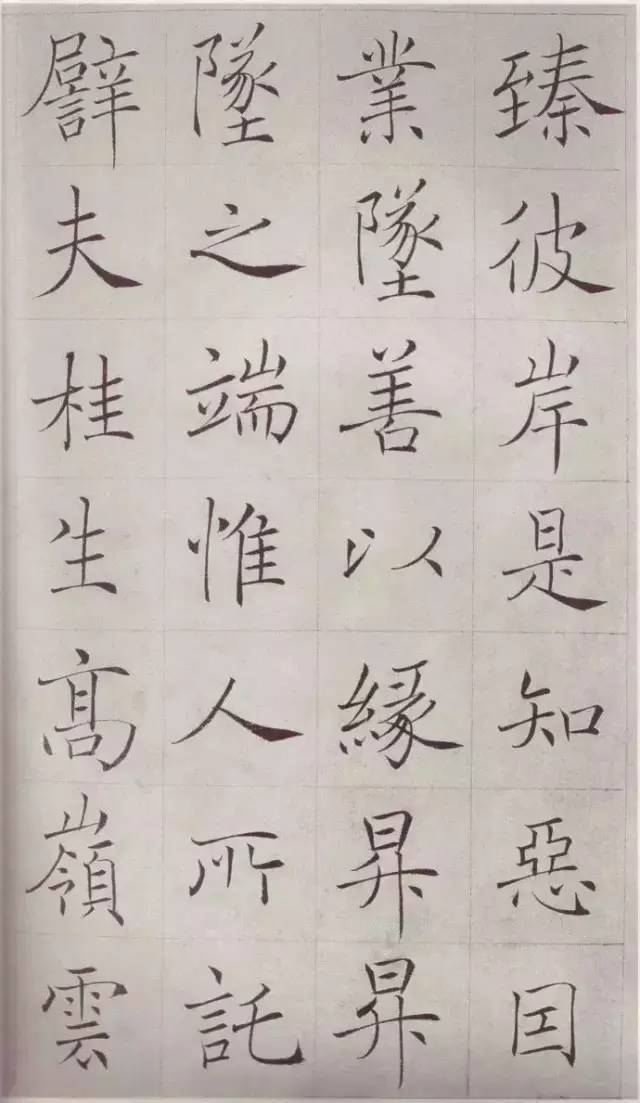 臻彼岸是知惡囙
業墜善以緣昇昇
墜之端惟人所託
譬夫桂生髙嶺雲